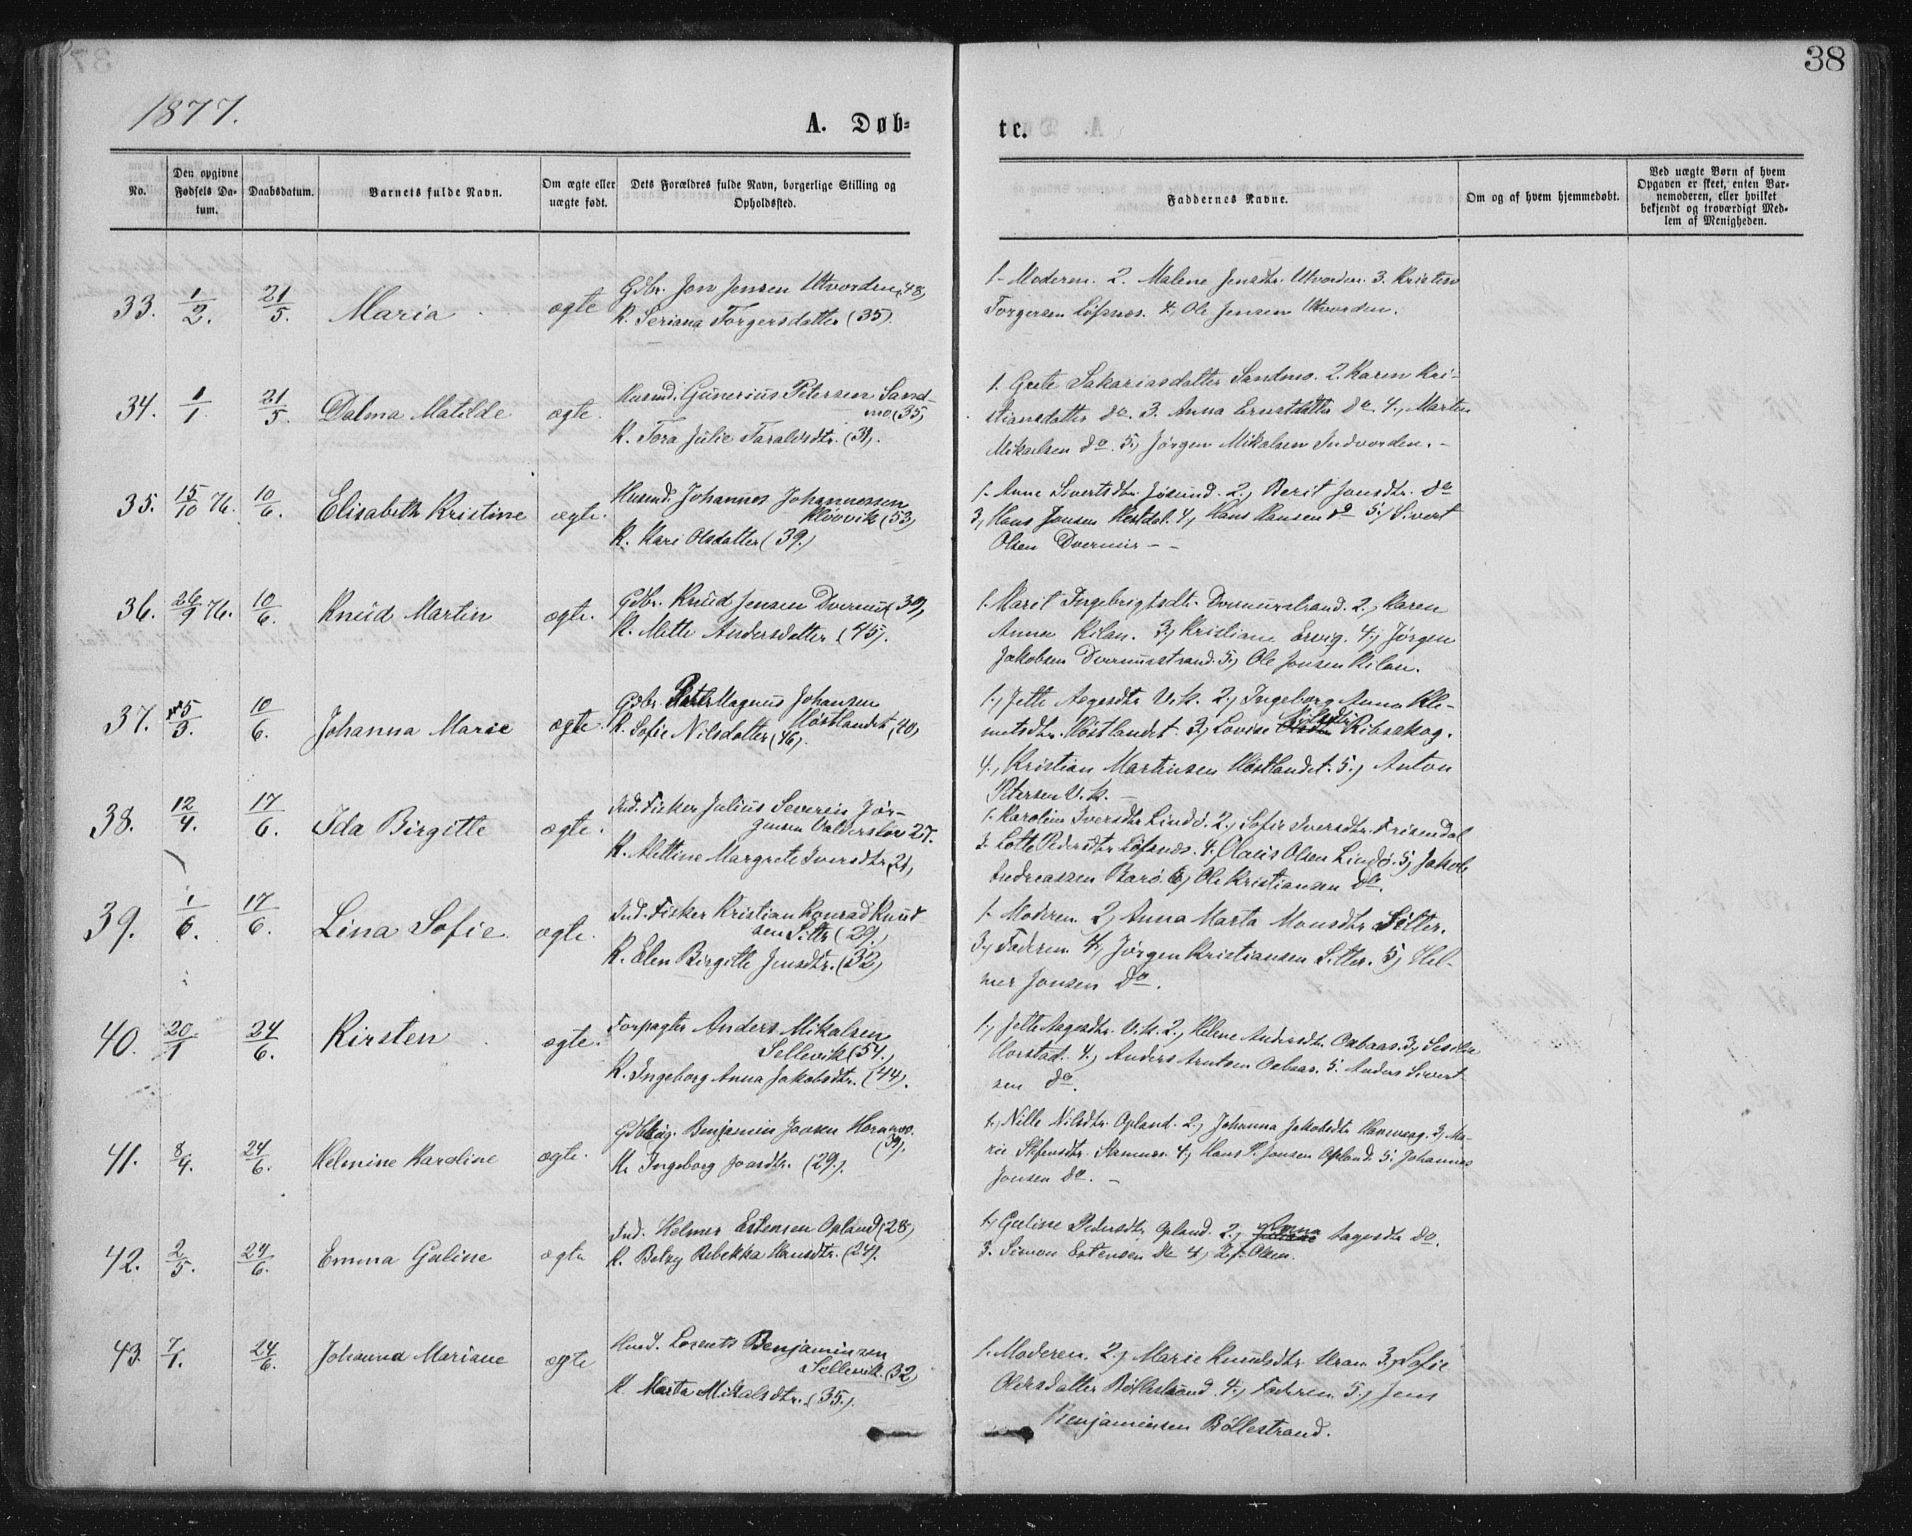 38
1877.
A. Døb-
te.
No.
Den opgivne Fødsels Da-
tum.
Daabsdatum.
Barnets fulde Navn.
Om ægte eller
uægte født.
Dets Forældres fulde Navn, borgerlige Stilling og
Opholdssted.
Faddernes Navne.
Om og af hvem hjemmedøbt.
Ved uægte Børn af hvem
Opgaven er skeet, enten Bar-
nemoderen, eller hvilket
bekjendt og troværdigt Med-
lem af Menigheden.
33. 1/2. 21/5. Maria ægte
Gdbr. Jon Jensen Utvorden (48)
K. Seriana Torgersdatter (35).
1. Moderen. 2. Malene Jensdtr. Utvorden. 3. Kristen
Torgersen Løfsnes. 4, Ole Jensen Utvorden.
34. 1/1. 21/5. Dalma Matilde ægte.
Husmd. Gunerius Petersen Sand-
mo (35)
K. Tora Julie Taraldsdtr. (31).
1. Grete Sakariasdatter Sandmo. 2. Karen Kri-
stiansdatter do. 3. Anna Ernstdatter do 4, Marten
Mikaelsen do. 5, Jørgen Mikalsen Indvorden. -
35. 15/10 76. 10/6. Elisabeth Kristine ægte.
Husmd. Johannes Johannessen
Kløvvik (53)
K. Kari Olsdatter (39.)
1. Anne Sivertsdtr. Jøsund. 2, Berit Jonsdtr. do
3, Hans Jonsen Restdal. 4, Hans Hansen do 5, Sivert
Olsen - -
36. 26/9 76. 10/6. Knud Martin ægte.
Gdbr. Knud Jensen (39)
K. Mette Andersdatter. (45).
1. Marit Ingebrigtsdtr. 2, Karen
Anna Kilan. 3, Kristiane Ervig. 4, Jørgen
Jakobsen 5, Ole Jonsen Kilan.
37. 5/3. 10/6. Johanna Marie ægte
Gdbr. Magnus Johansen
Høstlandet (40)
K. Sofie Nilsdatter (46).
1, Jette Aagesdtr Vik. 2, Ingeborg Anna Kle-
metsdtr. Høstlandet. 3, Lovise Ribsskog.
4, Kristian Martinsen Høstlandet. 5, Anton
Petersen Vik. -
38. 12/4. 17/6. Ida Birgitte ægte.
Ind. Fisker Julius Severin Jør-
gensen 27.
K. Mettine Margrete Iversdtr. 21,
1. Karoline Iversdtr Lindø. 2, Sofie Iversdtr. Frisendal
3. Lotte Pedersdtr Løfsnes. 4. Claus Olsen Lindø. 5, Jakob
Andreassen Barø. 6, Ole Kristiansen do.
39. 1/6. 17/6. Lina Sofie. ægte.
Ind. Fisker Kristian Konrad Knud
sen Sitter (29.)
K. Elen Birgitte Jensdtr. (32)
1. Moderen 2, Anna Marta Monsdtr Sitter.
3, Faderen 4, Jørgen Kristiansen Sitter. 5, Hel-
mer Jonsen do.
40. 20/1 24/6. Kirsten ægte.
Forpagter Anders Mikalsen
Sellevik (54.)
K. Ingeborg Anna Jakobsdtr. (44).
1, Jette Aagesdtr. Vik. 2, Helene Andersdtr. Oxbaas. 3,
Horstad. 4, Anders Arntsen Oxbaas. 5. Anders Sivert
sen do.
41. 8/4. 24/6. Helmine Karoline ægte.
Benjamin Joasen Hornnes
(39).
K. Ingeborg Joasdtr. (29.).
1, Nille Nilsdtr. Opland. 2, Johanna Jakobsdtr 3, Ma-
rie 4, Hans P. Jonsen Opland. 5. Johannes
Jonsen do. -
42. 2/5. 24/6. Emma Galine ægte
Ind. Helmer Estensen Opland (28)
K. Betsy Rebekka Hansdtr. (24).
1, Galine Pedersdtr Opland. 2, Aagesdtr do.
3. Simon Estensen do 4, Olsen.
43. 7/1. 24/6. Johanna Mariane ægte
Husmd. Lorents Benjaminsen
Sellevik. (32)
K. Marta Mikalsdtr. (35.).
1. Moderen. 2, Marie Knudsdtr. Uran 3, Sofie
Olersdatter Bøllestrand. 4, Faderen 5, Jens
Benjaminsen Bøllestrand.